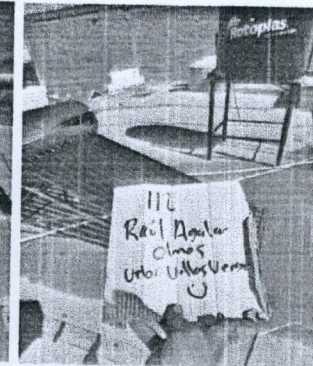 Rotoplas
112
Raúl Aguilar
Olmos
Urb. Villas Verse